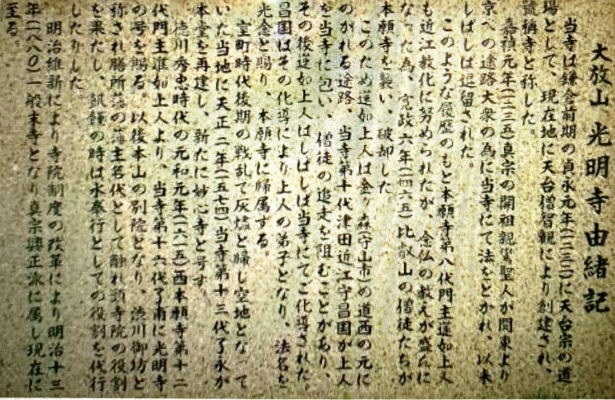 大放山 光明寺由緒記
当寺は鎌倉前期の貞永元年(一二三二)に天台宗の道
場として、現在地に天台僧智観により創建され、
號稱寺と称した。
嘉禎元年(一二三五)真宗の開祖親鸞聖人が関東より
京への途路大衆の為に当寺にて法をとかれ、以来
しばしば逗留された。
このような履歴のもと本願寺第八代門主蓮如上人
も近江教化に努められたが、念仏の教えが盛んに
なった為、寛政六年(一四六五)比叡山の僧徒たちが
本願寺を襲い、破却した。
このため蓮如上人は金ヶ森(守山市)の道西の元に
のがれる途路、当寺第十代津田近江守昌国が上人
を当寺に匿い、僧徒の追走を阻むことがあり、
その後蓮如上人はしばしば当寺にてご化導された。
昌国はその化導により上人の弟子となり、法名を
光念と賜り、本願寺に帰属する。
室町時代後期の戦乱で灰燼と帰し空地となって
いた当地に天正二年(一五七四)当寺第十三代了永が
本堂を再建し、新たに妙心寺と号す
徳川秀忠時代の元和元年(一六一五)西本願寺第十二
代門主准如上人より、当寺第十六代了甫に光明寺
の号を賜る。以後本山の別院となり、渋川御坊と
称され膳所藩の藩主名代として触れ頭寺院の役割
を果たし、飢饉の時は水奉行としての役割を代行
したりした。
明治維新により寺院制度の改革により明治十三
年(一八八〇)一般末寺となり真宗興正派に属し現在に
至る。